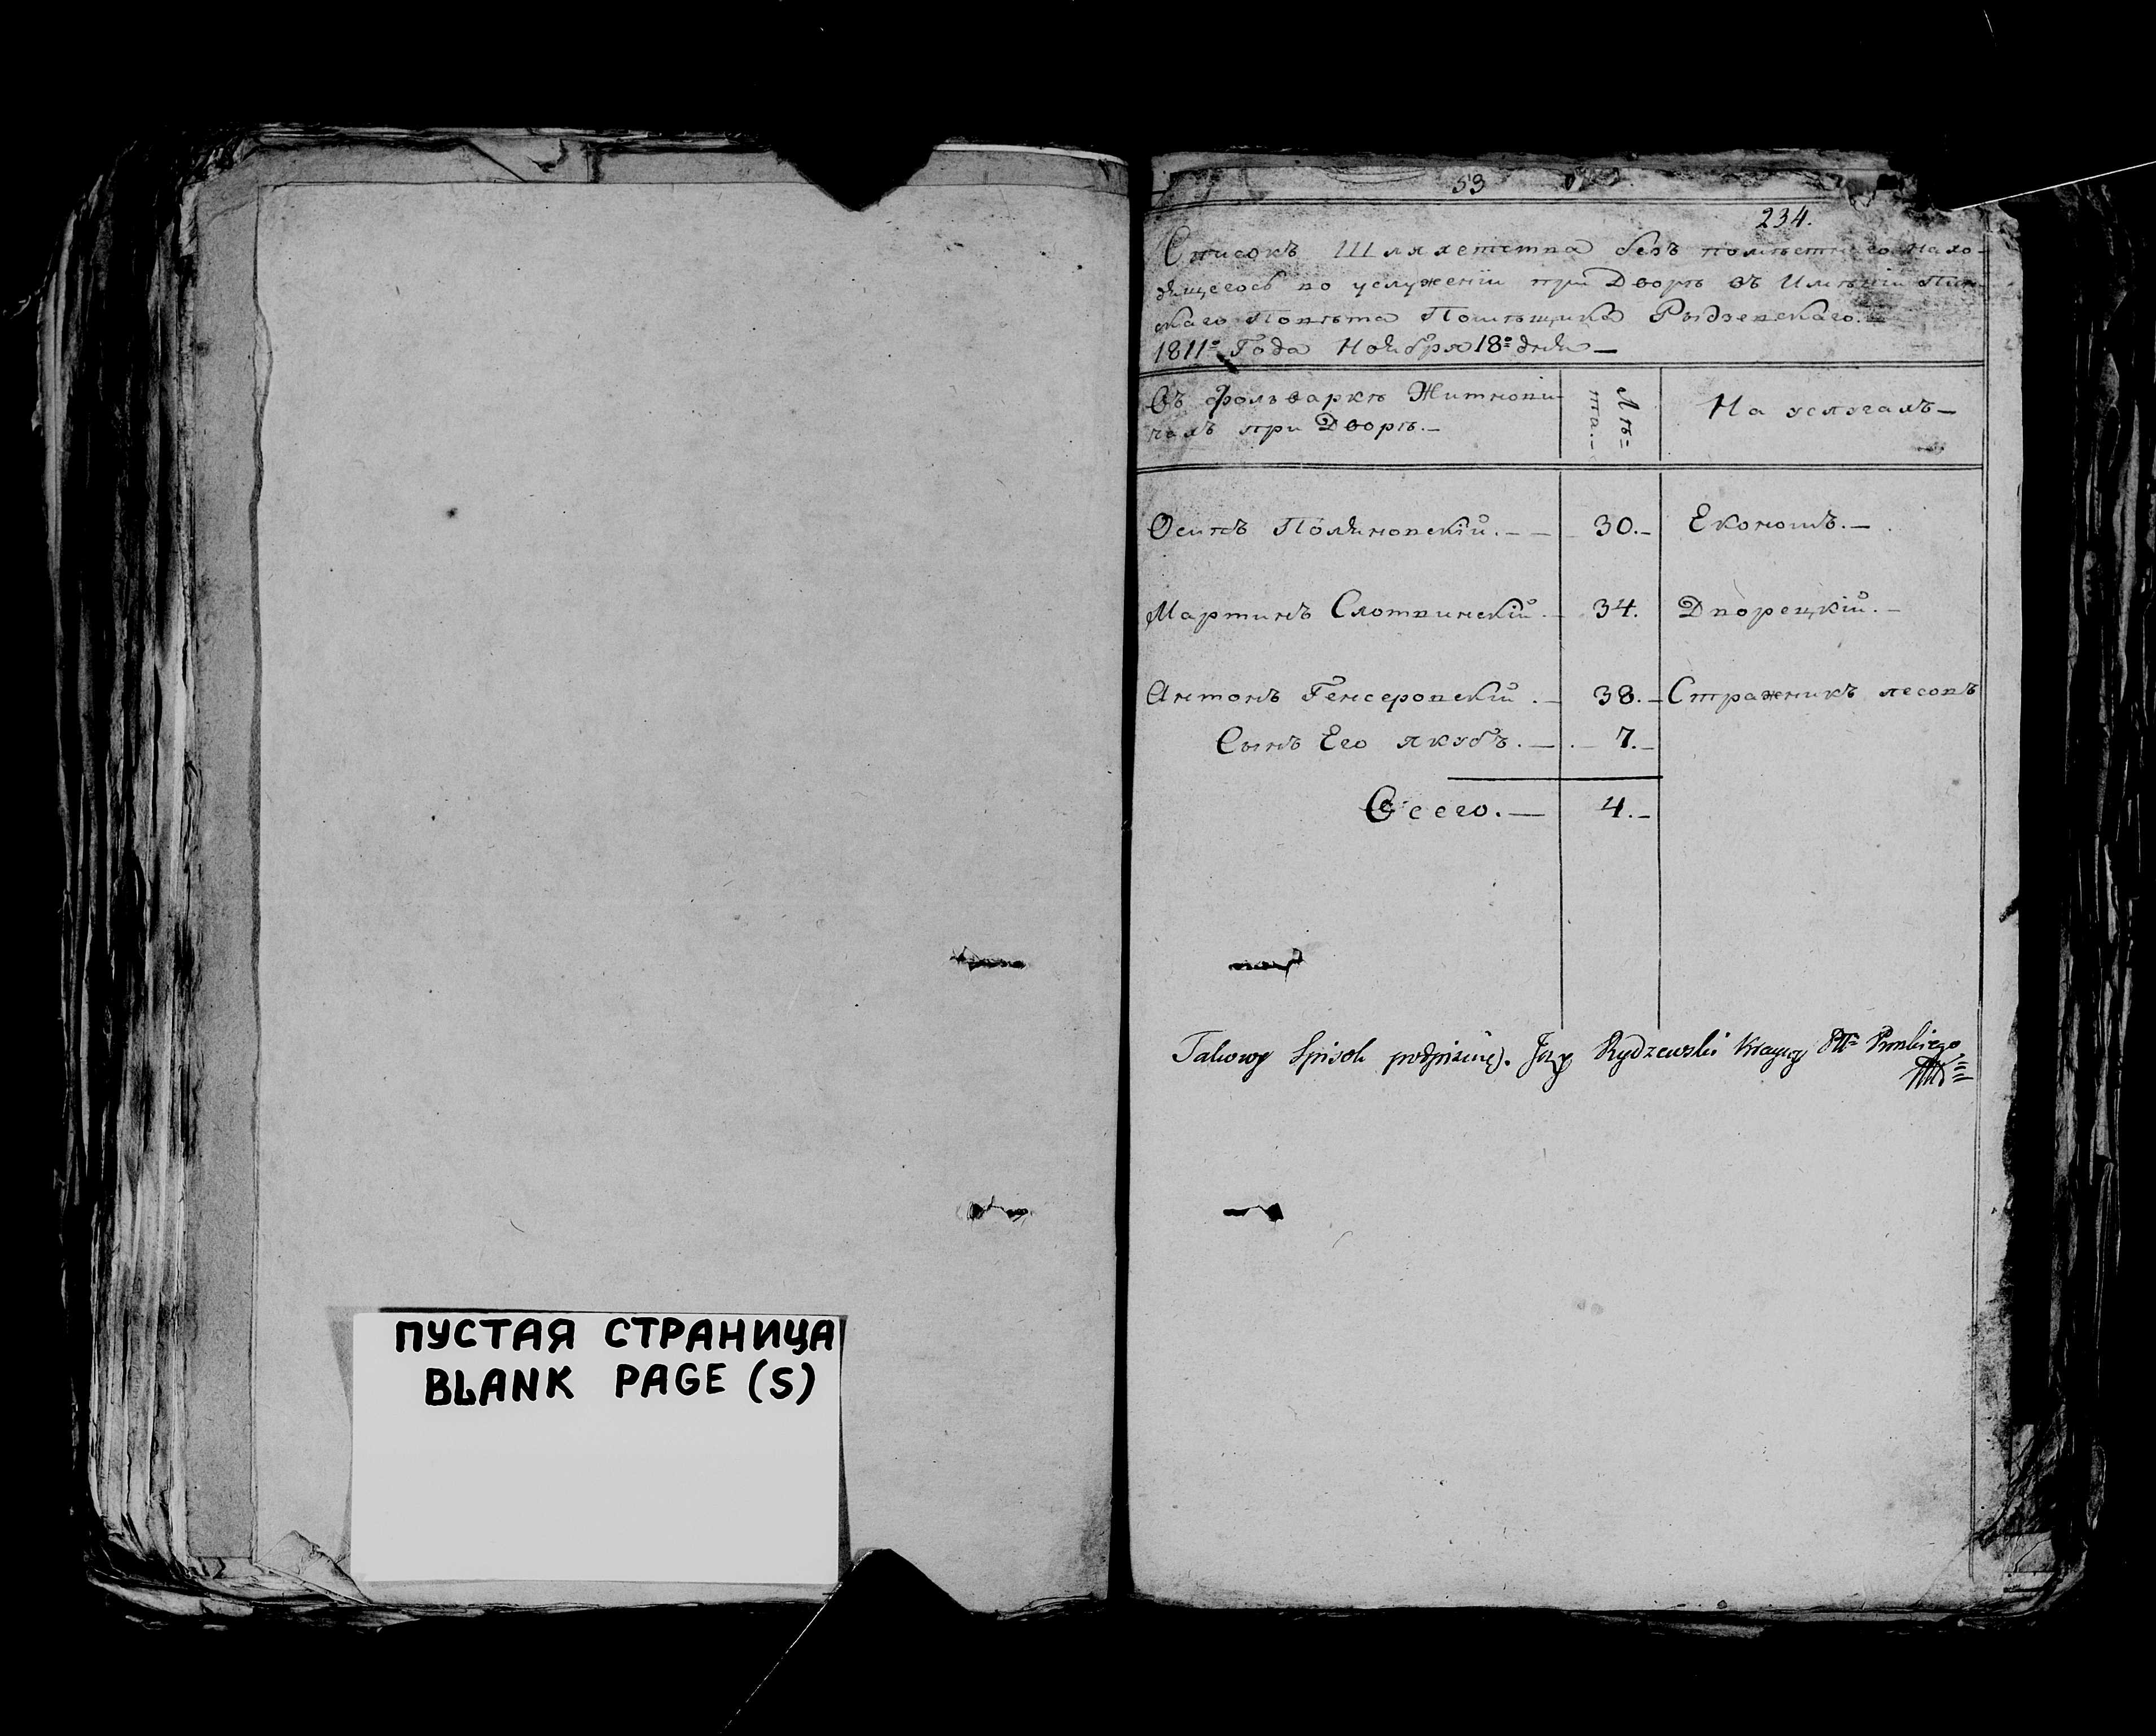 ПУСТАЯ СТРАНИЦА
BLANK PAGE (S)
53
234.
Списокъ Шляхетства безъ помѣстнаго нахо-
дящегось во услуженіи при Дворѣ въ Имѣніи Пин-
скаго Повѣта Помѣщика Рыдзевскаго.—
1811го Года Ноября 18го дня—
Въ фольваркѣ Житнови-
чахъ при Дворѣ.—
Лѣ=
та.—
На услугахъ—
Осипъ Поляновскій.— — 30.— Економъ.—
Мартинъ Слотвинскій.— 34. Дворецкій.—
Антонъ Генсеровскій.— 38.— Стражникъ лесовъ
Сынъ Его якубъ.— 7.—
Всего.— 4.—
Takowy Spisok podpisuię. Jerzy Rydzewski Pinskiego